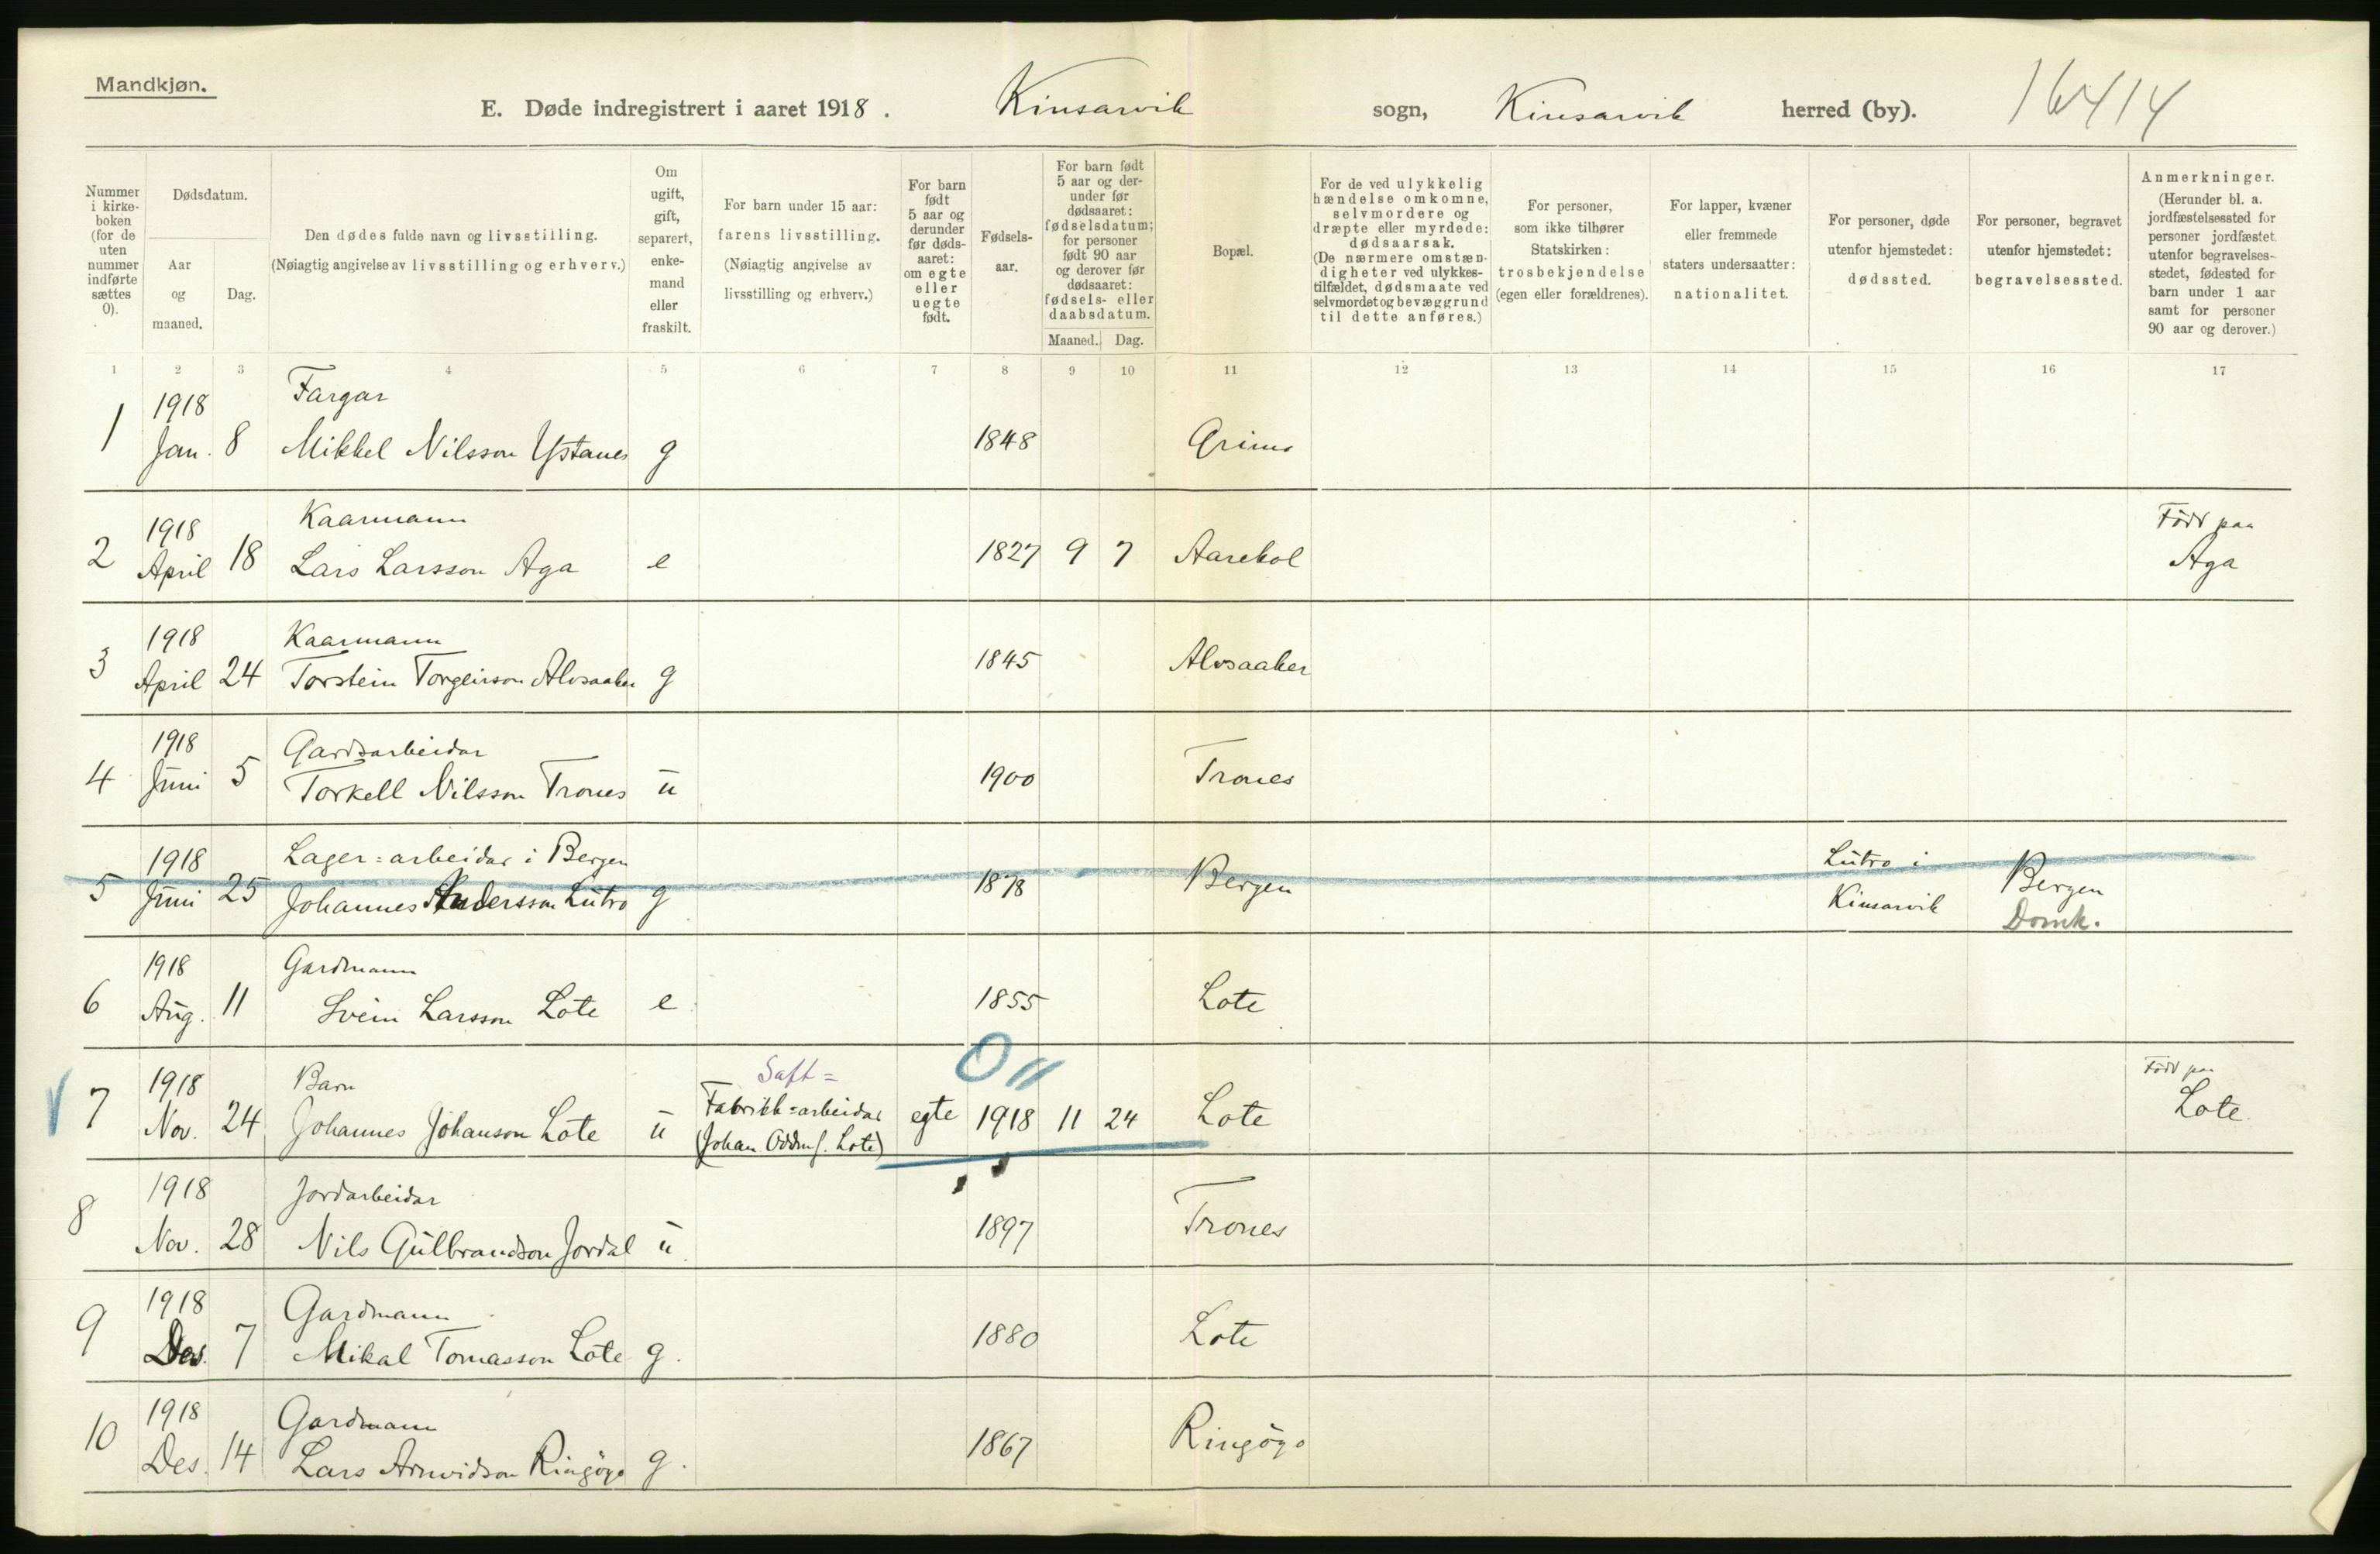 Mandkjøn.
E. Døde indregistrert i aaret 1918. Kinsarvik sogn, Kinsarvik herred (by). 16414
Nummer i kirkeboken (for de uten nummer indførte sættes 0).
Dødsdatum.
Aar og maaned.
Dag.
Den dødes fulde navn og livsstilling.
(Nøiagtig angivelse av livsstilling og erhverv.)
Om ugift, gift, separert, enkemand eller fraskilt.
For barn under 15 aar: farens livsstilling. (Nøiagtig angivelse av livsstilling og erhverv.)
For barn født 5 aar og derunder før dødsaaret: om egte eller uegte født.
Fødselsaar.
For barn født 5 aar og derunder før dødsaaret: fødselsdatum; for personer født 90 aar og derover før dødsaaret: fødsels- eller daabsdatum.
Maaned. Dag.
Bopæl.
For de ved ulykkelig hændelse omkomne, selvmordere og dræpte eller myrdede: dødsaarsak. (De nærmere omstændigheter ved ulykkestilfældet, dødsmaate ved selvmordet og bevæggrund til dette anføres.)
For personer, som ikke tilhører Statskirken: trosbekjendelse (egen eller forældrenes).
For lapper, kvæner eller fremmede staters undersaatter: nationalitet.
For personer, døde utenfor hjemstedet: dødssted.
For personer, begravet utenfor hjemstedet: begravelsessted.
Anmerkninger. (Herunder bl. a. jordfæstelsessted for personer jordfæstet utenfor begravelsesstedet, fødested for barn under 1 aar samt for personer 90 aar og derover.)
1 2 3 4 5 6 7 8 9 10 11 12 13 14 15 16 17
1918 Fargar
1 Jan. 8 Mikkel Nilsson Ystanes g 1848 Grimo
1918 Kaarmann Född paa
2 April 18 Lars Larsson Aga e 1827 9 7 Aarekol Aga
1918 Kaarmann
3 April 24 Torstein Torgeirson Alvsaaker g 1845 Alvsaaker
1918 Gardsarbeidar
4 Juni 5 Torkell Nilsson Trones u 1900 Trones
1918 Lager=arbeidar i Bergen Lutro i
5 Juni 25 Johannes Andersson Lutro g 1878 Bergen Kinsarvik Bergen
Domk.
1918 Gardmann
6 Aug. 11 Svein Larsson Lote e 1855 Lote
Saft= 0 11
1918 Barn Fabrikk=arbeidar Född paa
7 Nov. 24 Johannes Johanson Lote u (Johan Oddm f. Lote) egte 1918 11 24 Lote Lote
1918 Jordarbeidar
8 Nov. 28 Nils Gulbrandson Jordal u. 1897 Trones
1918 Gardmann
9 Des. 7 Mikal Tomasson Lote g. 1880 Lote
1918 Gardmann
10 Des. 14 Lars Arnvidson Ringöyo g. 1867 Ringöyo